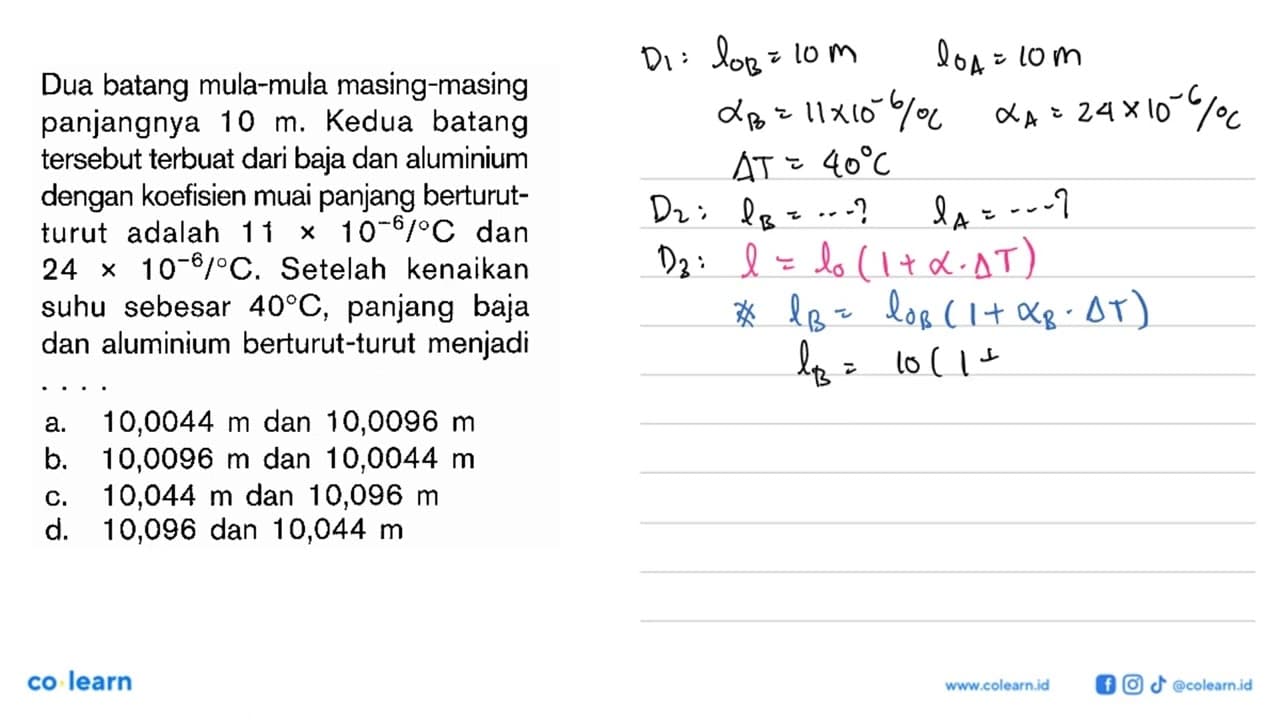 Dua batang mula-mula masing-masing
panjangnya 10 m. Kedua batang
tersebut terbuat dari baja dan aluminium
dengan koefisien muai panjang berturut-
turut adalah 11 × 10⁻⁶/°C dan
24 × 10⁻⁶/°C. Setelah kenaikan
suhu sebesar 40°C, panjang baja
dan aluminium berturut-turut menjadi
. . . .
a. 10,0044 m dan 10,0096 m
b. 10,0096 m dan 10,0044 m
c. 10,044 m dan 10,096 m
d. 10,096 dan 10,044 m
D₁: l₀B = 10 m l₀A = 10 m
αB = 11×10⁻⁶/°C αA = 24×10⁻⁶/°C
ΔT = 40°C
D₂: lB = ...? lA = ...?
D₃: l = l₀(1+α.ΔT)
* lB = l₀B(1+αB.ΔT)
lB = 10(1+
co learn
www.colearn.id @colearn.id